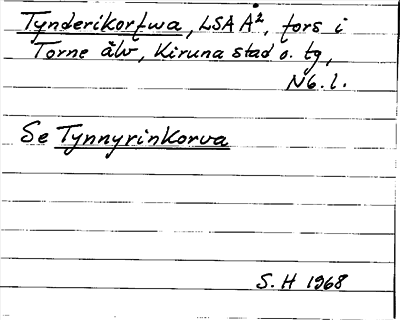 Tynderikorfwa, LSA Å², fors i
Torne älv, Kiruna stad o. tg,
Nb. l.
Se Tynnyrinkorva
S. H 1968